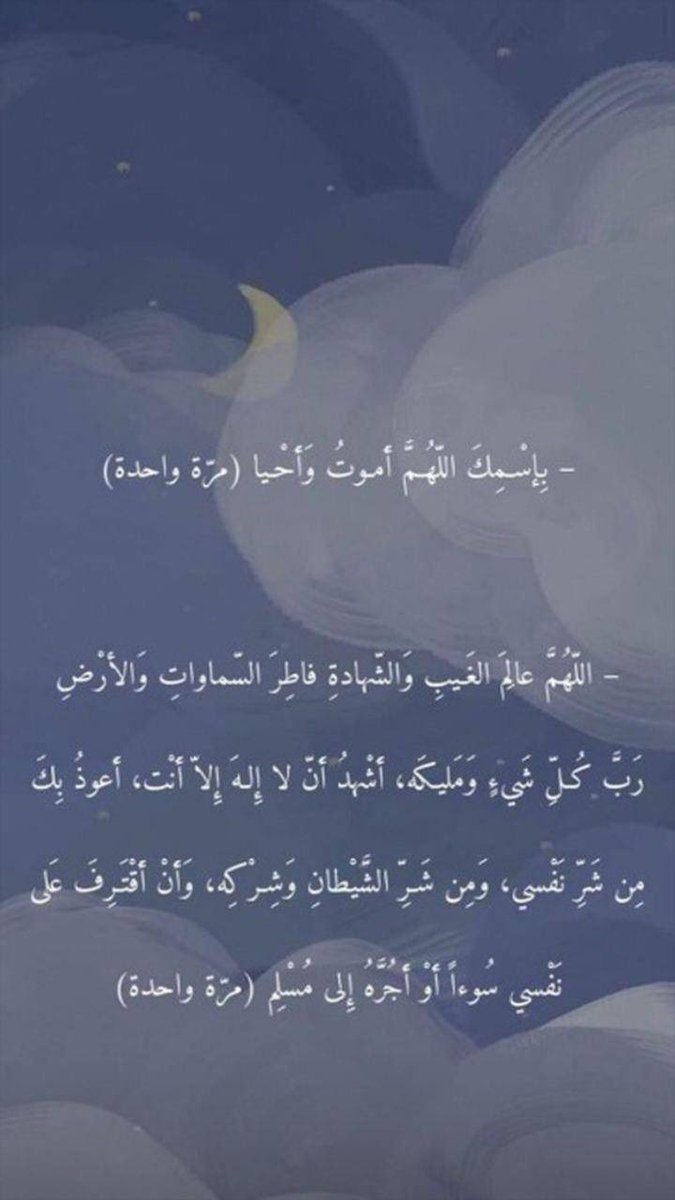 - بِإسْـمِكَ اللّهُـمَّ أمـوتُ وَأَحْـيا (مرّة واحدة)
- اللّهُمَّ عالِمَ الغَـيبِ وَالشّهادةِ فاطِرَ السّماواتِ وَالأرْضِ
رَبَّ كُـلِّ شَيءٍ وَمَليـكَه، أشْهدُ أنّ لا إِلـهَ إِلاّ أنْت، أعوذُ بِكَ
مِن شَرِّ نَفْسي، وَمِن شَـرِّ الشَّيْطانِ وَشِـرْكِه، وَأنْ أقْتَـرِفَ عَلى
نَفْسي سُوءاً أوْ أجُرَّهُ إِلى مُسْلِم (مرّة واحدة)